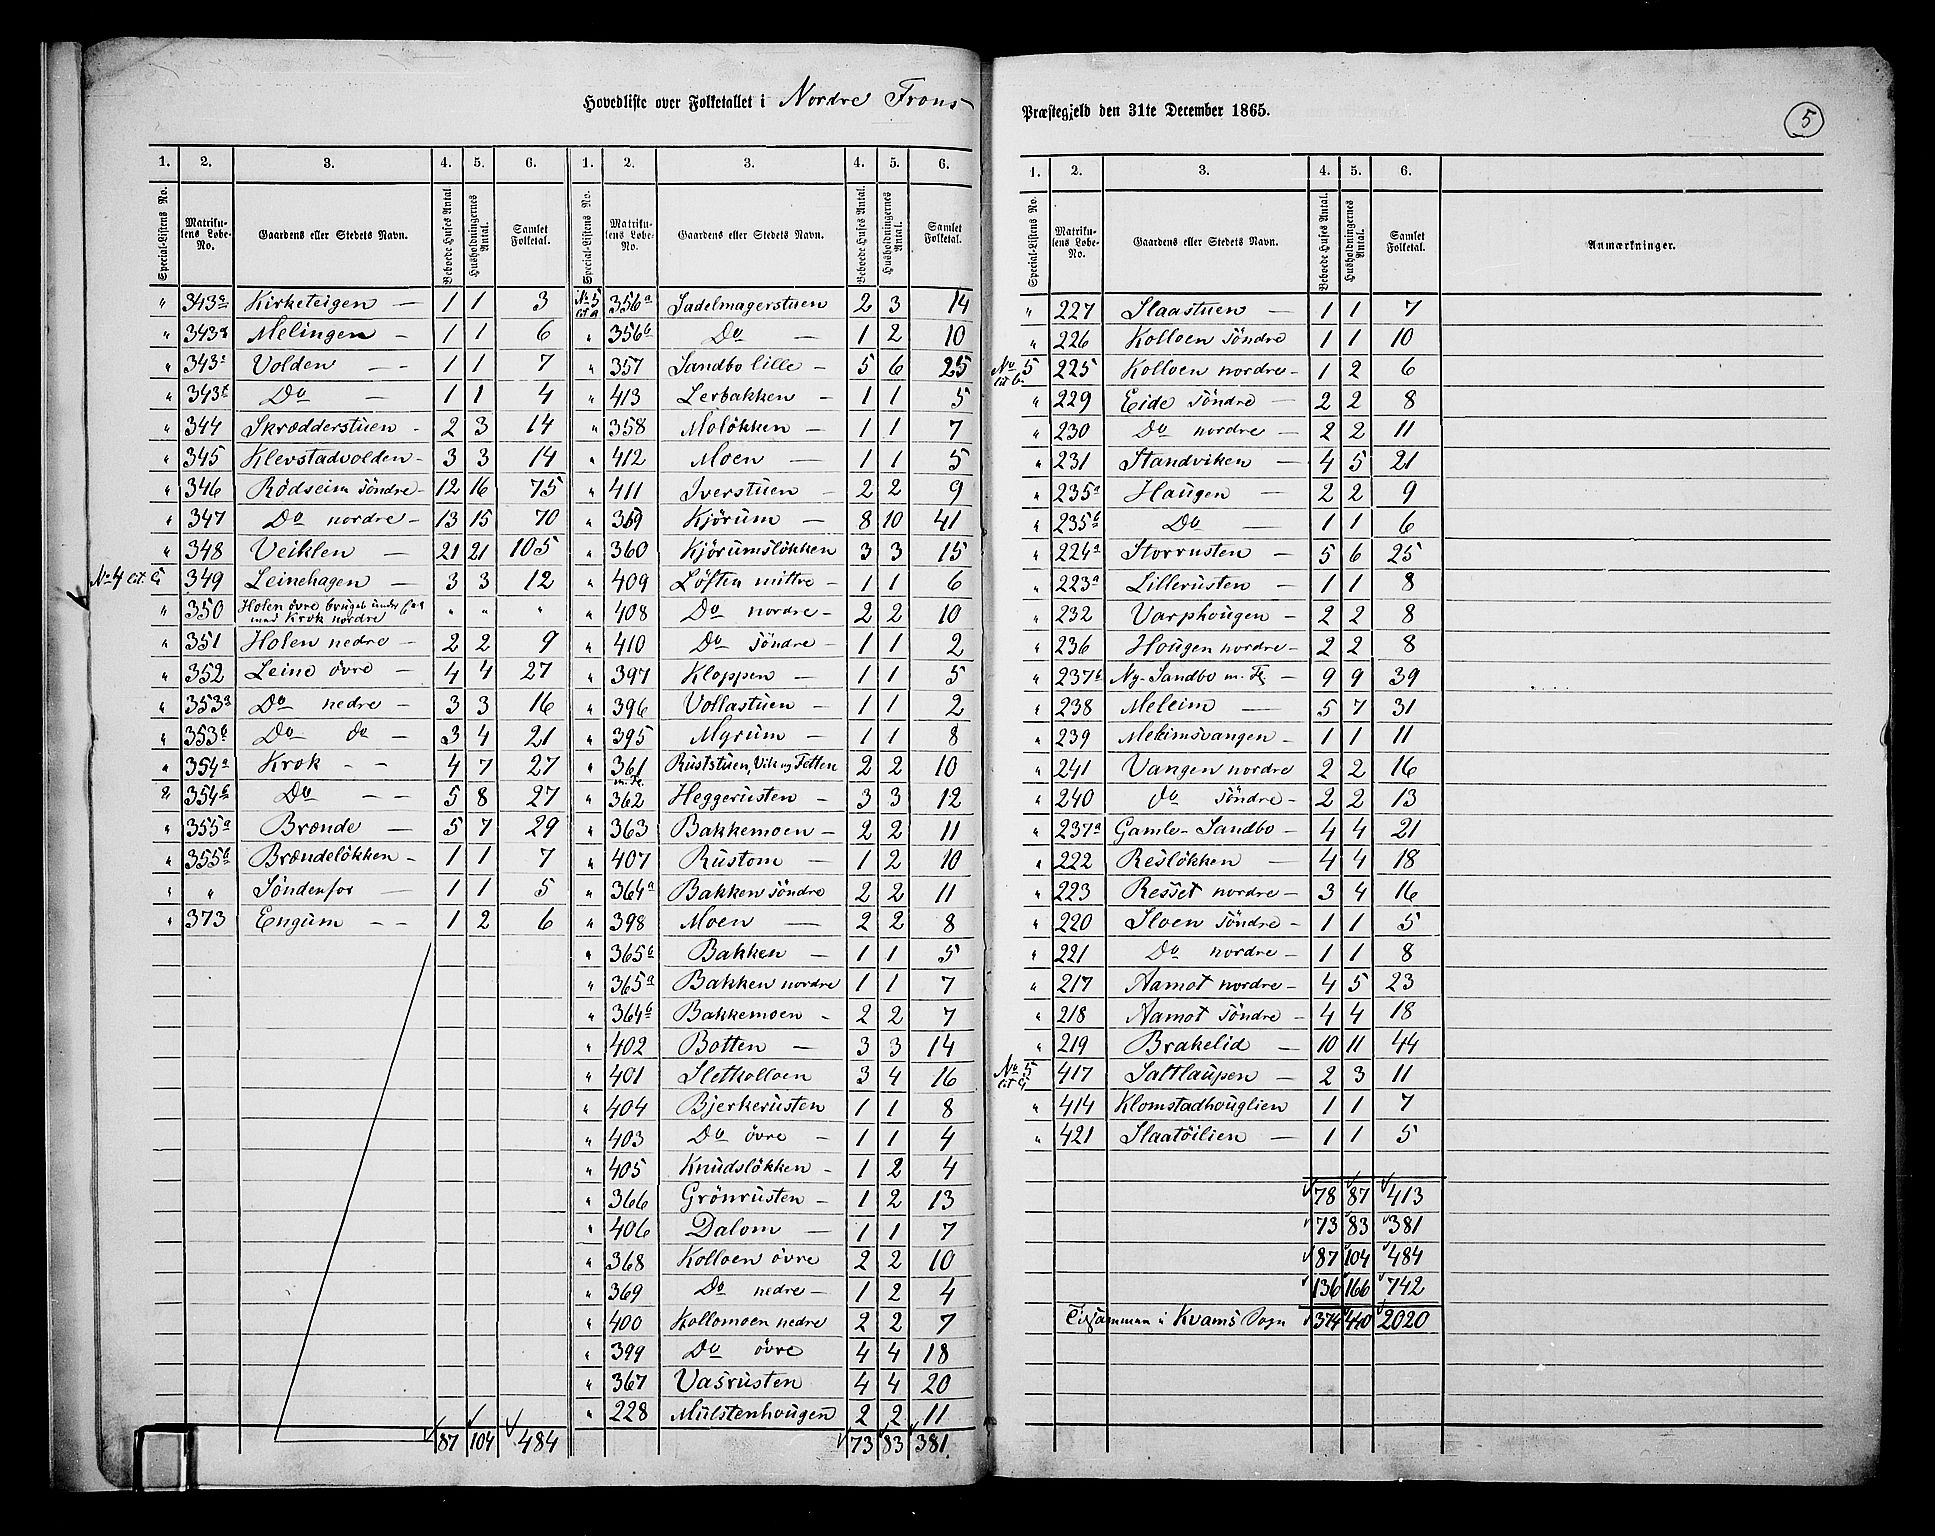 Hovedliste over Folketallet i Nordre Frons
Præstegjeld den 31te December 1865.
5
1. 2. 3. 4. 5. 6. 1. 2. 3. 4. 5. 6.
Special-Listens No. Matrikulens Løbe-No. Gaardens eller Stedets Navn. Beboede Huses Antal Husholdningernes Antal. Samlet Folketal. Special-Listens No. Matrikulens Løbe-No. Gaardens eller Stedets Navn. Beboede Huses Antal. Husholdningernes Antal. Samlet Folketal.
" 343 Kirketeigen — 1 1 3
" 343 Melingen - 1 1 6
" 343 Volden - - 1 1 7
" 343 Do - 1 1 4
" 344 Skrædderstuen - 2 3 14
" 345 Klevstadvolden - 3 3 14
" 346 Rödseim söndre - 12 16 75
" 347 Do nordre - 13 15 70
" 348 Veiklen — 21 21 105
No 4 Lit. C 349 Leinehagen — 3 3 12
" 350 Holen övre bruges under med Krok nordre " " "
" 351 Holen nedre - 2 2 9
" 352 Leine övre - 4 4 27
" 353a Do nedre - 3 3 16
" 353b Do do - 3 4 21
" 354a Krok - - 4 7 27
" 354b Do - - 5 8 27
" 355a Brænde — 5 7 29
" 355b Brændelökken - 1 1 7
" " Söndenfor — 1 1 5
" 373 Engum - - 1 2 6
87 104 484
No 5 Lit a 356a Sadelmagerstuen 2 3 14
" 356b Do 1 2 10
" 357 Sandbo lille - 5 6 25
" 413 Lerbakken - 1 1 5
" 358 Molökken - 1 1 7
" 412 Moen — 1 1 5
" 411 Iverstuen - 2 2 9
" 359 Kjörum — 8 10 41
" 360 Kjörumslökken 3 3 15
" 409 Löften mittre - 1 1 6
" 408 Do nordre - 2 2 10
" 410 Do söndre - 1 1 2
" 397 Kloppen - 1 1 5
" 396 Vollastuen - 1 1 2
" 395 Myrum — 1 1 8
" 361 m. Fl. Ruststuen, Vik og Fetten 2 2 10
" 362 Heggerusten - 3 3 12
" 363 Bakkemoen - 2 2 11
" 407 Rustom — 1 2 10
" 364a Bakken söndre 2 2 11
" 398 Moen — 2 2 8
" 365b Bakken — 1 1 5
" 365a Bakken nordre 1 1 7
" 364b Bakkemoen - 2 2 7
" 402 Botten — 3 3 14
" 401 Sletkolloen 3 4 16
" 404 Bjerkerusten 1 1 8
" 403 Do övre - 1 1 4
" 405 Knudslökken - 1 2 4
" 366 Grönrusten - 1 2 13
" 406 Dalom — 1 1 7
" 368 Kolloen övre 2 2 10
" 369 Do nedre - 1 2 4
" 400 Kollomoen nedre 2 2 7
" 399 Do övre 4 4 18
" 367 Vasrusten 4 4 20
" 228 Mulstenhougen 2 2 11
73 83 381.
1. 2. 3. 4. 5. 6.
Special-Listens No. Matrikulens Løbe-No. Gaardens eller Stedets Navn. Beboede Huses Antal. Husholdningernes Antal. Samlet Folketal. Anmærkninger.
" 227 Slaastuen — 1 1 7
" 226 Kolloen söndre 1 1 10
No 5 Lit b. 225 Kolloen nordre - 1 2 6
" 229 Eide söndre — 2 2 8
" 230 Do nordre - 2 2 11
" 231 Standviken — 4 5 21
" 235a Haugen — 2 2 9
" 235b Do — 1 1 6
" 224a Storrusten — 5 6 25
" 223a Lillerusten — 1 1 8
" 232 Varphougen - 2 2 8
" 236 Hougen nordre - 2 2 8
" 237b Ny-Sandbo m. Fl — 9 9 39
" 238 Meleim — 5 7 31
" 239 Meleimsvangen - 1 1 11
" 241 Vangen nordre 2 2 16
" 240 do söndre - 2 2 13
" 237a Gamle-Sandbo - 4 4 21
" 222 Reslökken — 4 4 18
" 223 Resset nordre - 3 4 16
" 220 Sloen söndre - 1 1 5
" 221 Do nordre - 1 1 8
" 217 Aamot nordre - 4 5 23
" 218 Aamot söndre - 4 4 18
" 219 Brakelid — 10 11 44
No 5 Lit C 417 Saltlaupen — 2 3 11
" 414 Klomstadhouglien 1 1 7
" 421 Slaatöilien — 1 1 5
78 87 413
73 83 381
87 104 484
136 166 742
Tilsammen i Kvams Sogn 374 440 2020